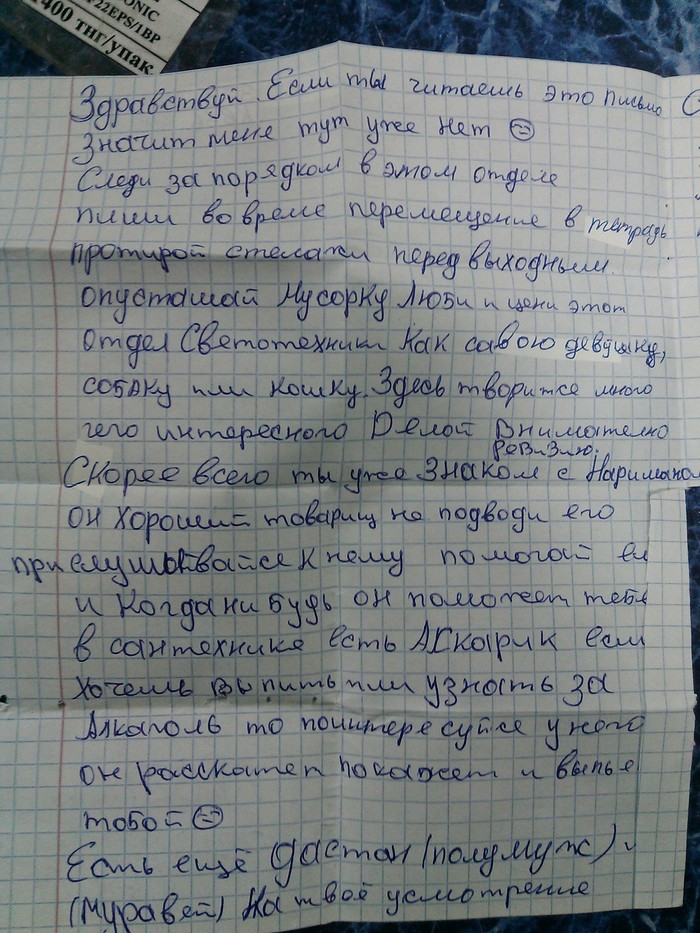 ONIC
P22EPS/1BP
1400 тнг/упак
Здравствуй. Если ты читаешь это письмо
Значит меня тут уже нет
Следи за порядком в этом отделе
пиши во время перемещение в тетрадь
протирой стелажи перед выходным.
опусташай Мусорку Люби и цени этот
отдел Светотехники Как савою девушку,
собаку или кошку. Здесь творится много
чего интересного Делай Внимателно
Ревизию.
Скорее всего ты уже Знаком с Нариманом
он хороший товарищ не подводи его
прислушивайся к нему помогай ем
и Когданибудь он поможет тебе
в сантехнике есть Аскарик если
хочешь выпить или узнать за
Алкаголь то поинтересуйся у него
он расскажет покажет и выпье
тобой
Есть ещё Дастан (полумуж) и
(Муравей) На твоё усмотрение